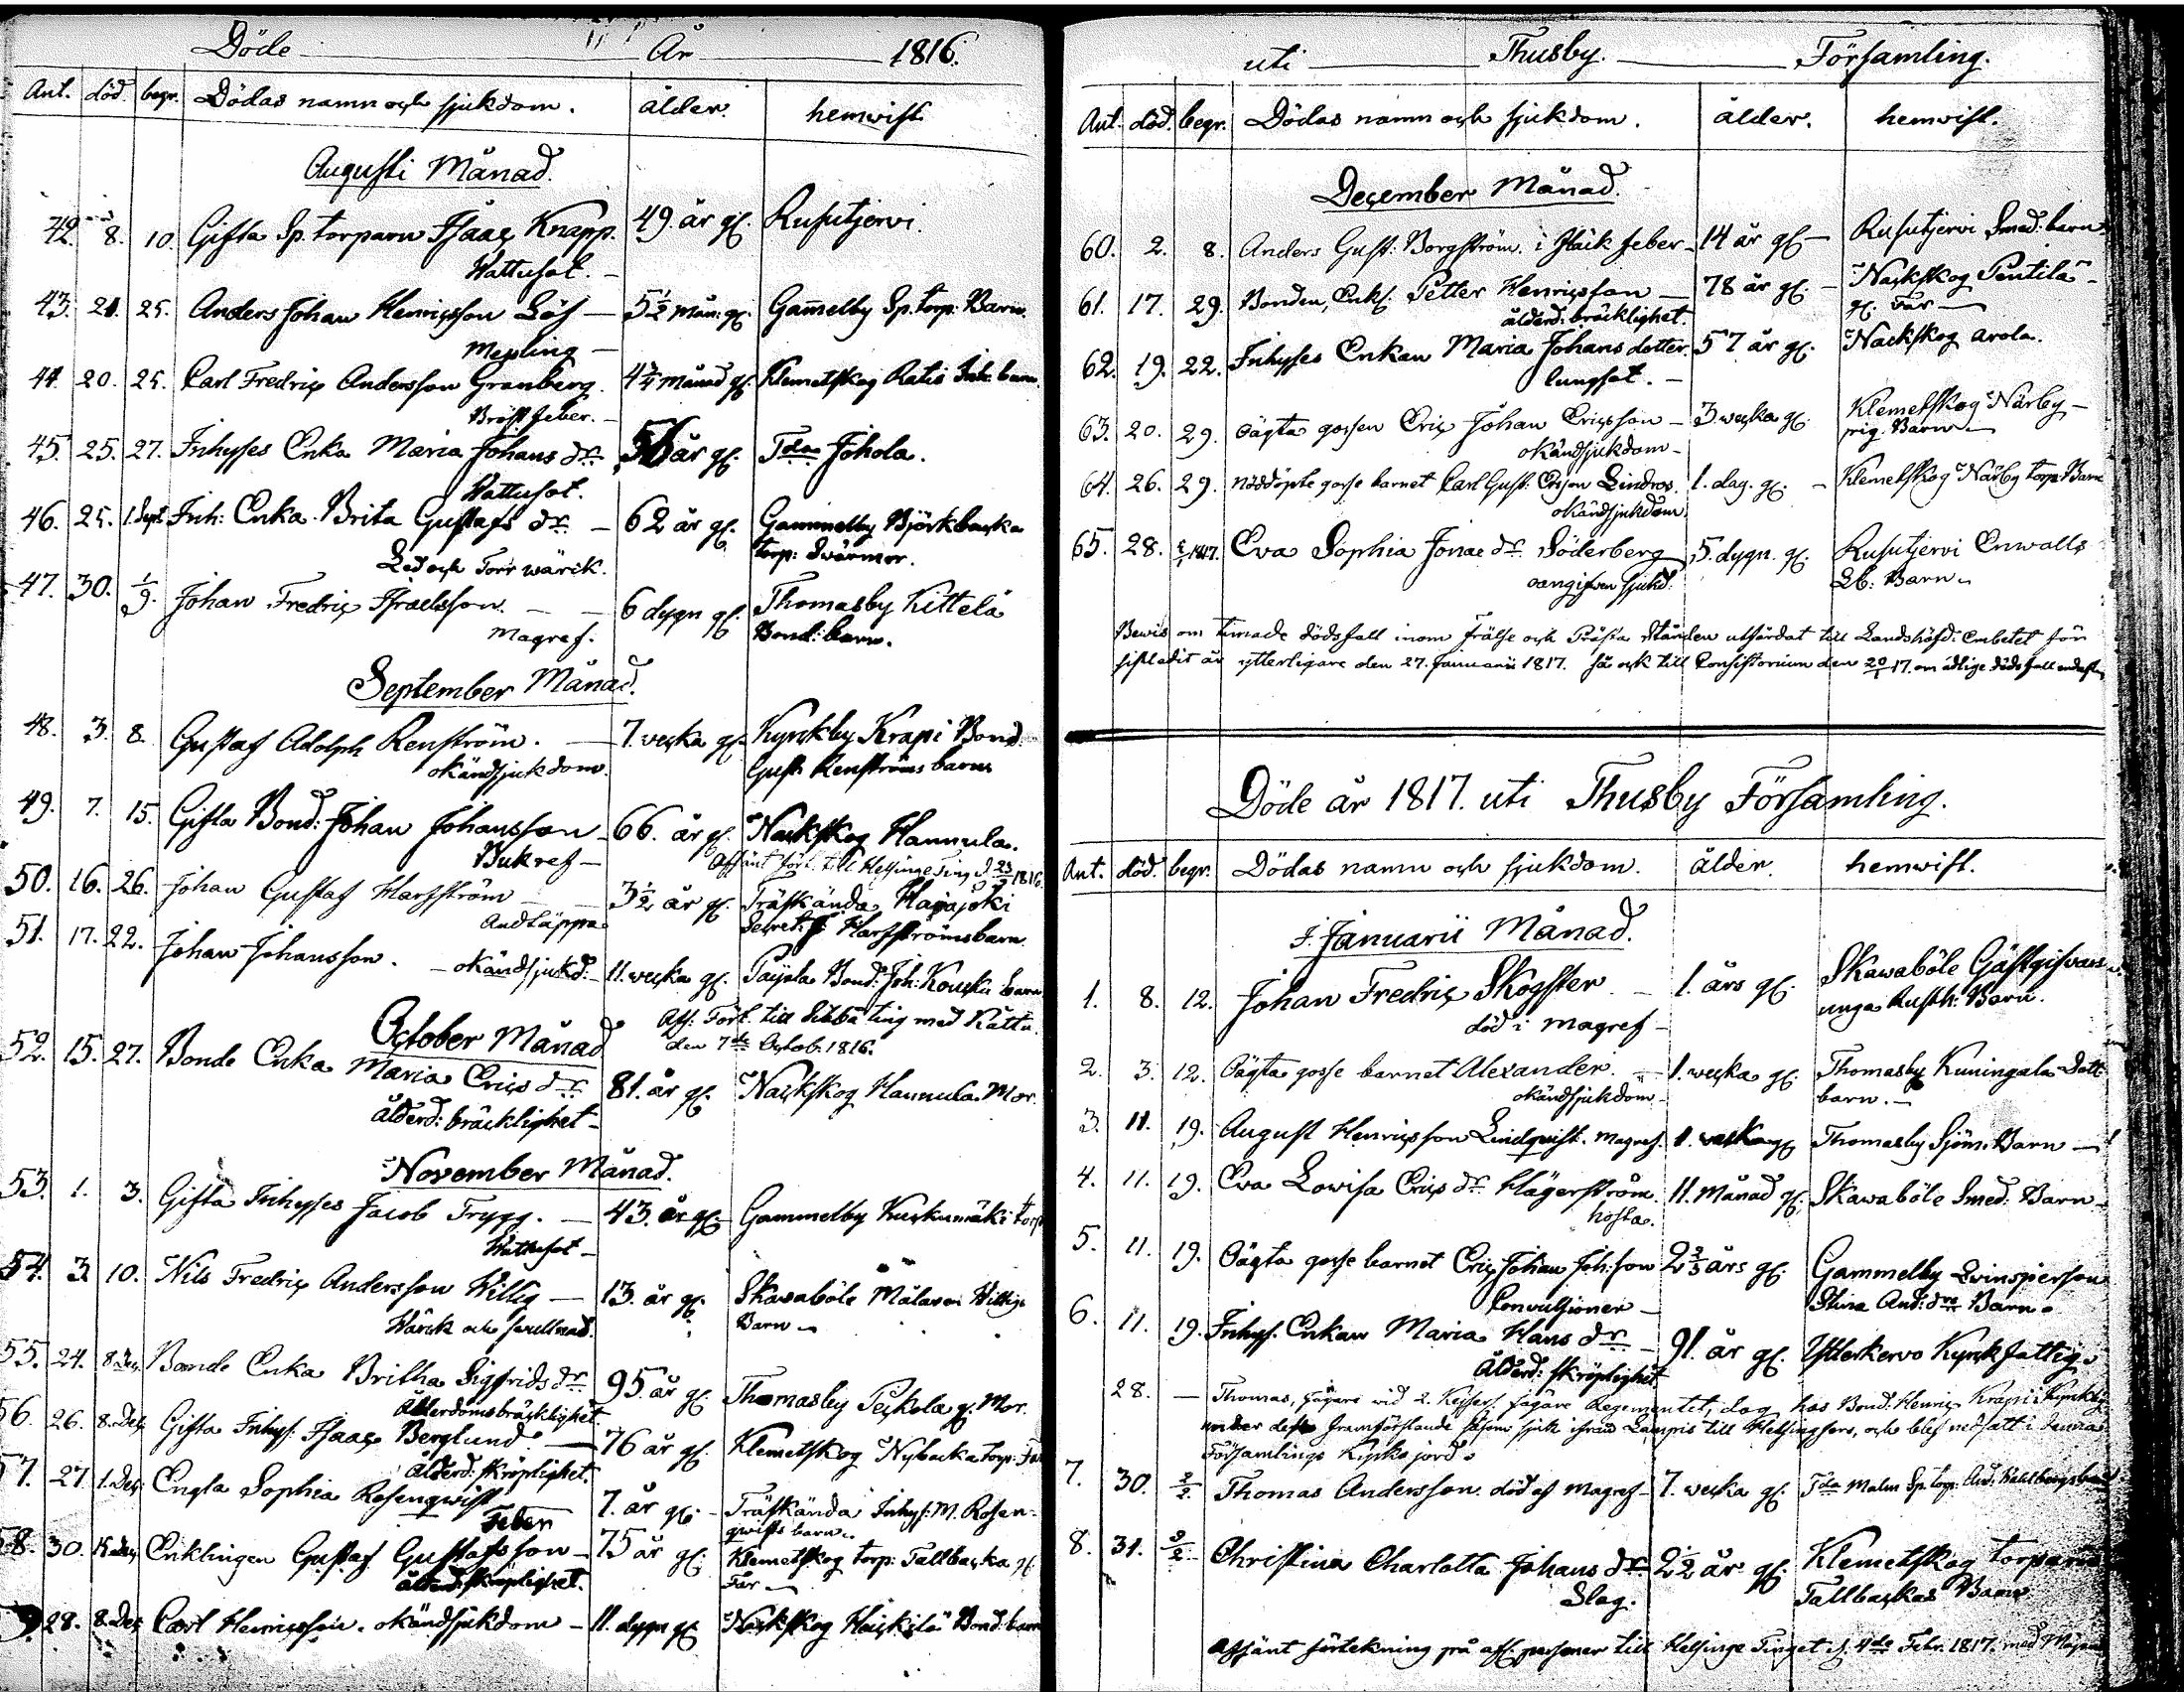 Döde År 1816.
Ant. död. begr. Dödas namn och sjukdom. ålder. hemwist.
Augusti Månad.
42. 8. 10 Gifta Sp. torparn Isaac Knapp. 49. år gl. Rusutjervi.
Wattusot.
43. 21. 25. Anders Johan Henricsson Löf 5 1/2 mån: gl. Gam̄elby Sp. torp: Barn.
Messling
44. 20. 25. Carl Fredric Andersson Granberg. 4 3/4 månad gl. Klemetskog Ratis Inh: barn.
Bröst feber.
45. 25. 27. Inhyses Enka Maria Johans dr. 56 år gl. Johola.
Wattusot.
46. 25. 1. Sept. Inh: Enka Brita Gustafs dr. 62 år gl. Gammelby Björkbacka
torp: Swärmor.
Led och Torr wärck.
47. 30. 1/9. Johan Fredric Israelsson. 6 dygn gl. Thomasby Kittelä
Magref. Bond: barn.
September Månad.
48. 3. 8. Gustaf Adolph Renström. 7. wecka gl. Kyrckby Krapi Bond.
okänd sjukdom. Gust. Renströms barn
49. 7. 15. Gifta Bond: Johan Johansson 66. år gl. Nackskog Hannula.
Bukref Afsänt förl. till Helsinge Ting d. 23/9 1816.
50. 16. 26. Johan Gustaf Harfström 3 1/2 år gl. Träskända
Andtäppa Harfströms barn.
51. 17. 22. Johan Johansson. okänd sjukd: 11. wecka gl. Paijala Bond: Joh: barn
October Månad Aff: Förl. till Sibbå ting med
den 7de Octob. 1816.
52. 15. 27. Bonde Enka Maria Erics dr. 81. år gl. Nackskog Hannula Mor.
Ålderd: bräcklighet
November Månad.
53. 1. 3. Gifta Inhyses Jacob Trygg. 43. år gl. Gammelby Kuckumäki torp
Wattusot
54. 3. 10. Nils Fredric Andersson Willig 13. år gl. Skavaböle Målaren Willigs
Wärck och swullnad. Barn
55. 24. 8. Dec. Bonde Enka Britha Sigfrids dr. 95. år gl. Thomasby Peckola g. Mor.
Ålderdoms bräcklighet.
56. 26. 8. Dec. Gifta Inhys: Isaac Berglund. 76 år gl. Klemetskog Nybacka torp:
Ålderd: skröplighet.
57. 27. 1. Dec. Engla Sophia Rosenqwist 7. år gl. Träskända Inhys: M. Rosen-
Feber qwists barn.
58. 30. 15 dec. Enklingen Gustaf Gustafsson 75 år gl. Klemetskog torp: Tallbacka gl.
Ålderd: skröplighet. Far
28. 8. Dec. Carl Henricsson. okänd sjukdom 11. dygn gl. Nackskog Häickilä Bond: barn
uti Thusby. Församling.
Ant. död. begr. Dödas namn och sjukdom. ålder. hemwist.
December Månad.
60. 2. 8. Anders Gust: Borgström. i feber 14 år gl. Rusutjervi Smed: barn.
61. 17. 29. Bonden, Enkl. Petter Henricsson 78 år gl. Nackskog Pentilä
ålderd: bräcklighet. gl. Far
62. 19. 22. Inhyses Enkan Maria Johans dotter. 57 år gl. Nackskog Arola.
lungsot.
63. 20. 29. Oägta gossen Eric Johan Ericsson 3 wecka gl. Klemetskog Närby
okänd sjukdom pig. Barn
64. 26. 29. nöddöpte gosse barnet Carl Gust: Lindros. 1. dag. gl. Klemetskog Närby torp: Barn
okänd sjukdom
65. 28. 1817. Eva Sophia Jonae dr. Söderberg 5. dygn. gl. Rusutjervi Enwalls
oangifven sjukd. Barn
Bewis om timade dödsfall inom Frälse och Prästa Stånden utfärdat till Landshöfd: Embetet för
sistledit år ytterligare den 27. Januarii 1817. så ock till Consistorium den 20/1 17. om adlige dödsfall endast.
Döde år 1817. uti Thusby Församling.
Ant. död. begr. Dödas namn och sjukdom. ålder. hemwist.
I. Januarii Månad.
1. 8. 12. Johan Fredric Skogster 1. års gl. Skawaböle Gästgifvars
död i magref unga Rusth: Barn.
2. 3. 12. Oägta gosse barnet Alexander. 1. wecka gl. Thomasby Kuningala Dott:
okänd sjukdom barn.
3. 11. 19. August Henricsson Lindqvist. magref. wecka gl. Thomasby Sjöm. Barn
4. 11. 19. Eva Lovisa Erics dr. Hägerström. 11. Månad gl. Skawaböle Smed: Barn
hosta.
5. 11. 19. Oägta gosse barnet Eric Johan Joh:son 2 2/3 års gl. Gammelby Qvinsperson
Convultsioner Stina And: drs Barn
6. 11. 19. Inhys. Enkan Maria Hans dr. 91. år gl. Ytterkervo Kyrck fattig.
Ålderd: skröplighet
28. Thomas, Jägare vid 2. Kejserl. Jägare Regementet, dog hos Bond: Henric Krapi i Kyrckby
under dess framförslande såsom sjuk ifrån Lampis till Helsingfors, och blef nedsatt i denna
Församlings Kyrko jord.
7. 30. 2/2. Thomas Andersson död af magref 7. wecka gl. Malm Sp. torp: And:
8. 31. 2/2. Christina Charlotta Johans dr. 2 1/2 år gl. Klemetskog torparn
Slag. Tallbackas Barn
Afsänt förtekning på aff. personer till Helsinge Tinget d. 4de Febr. 1817. med